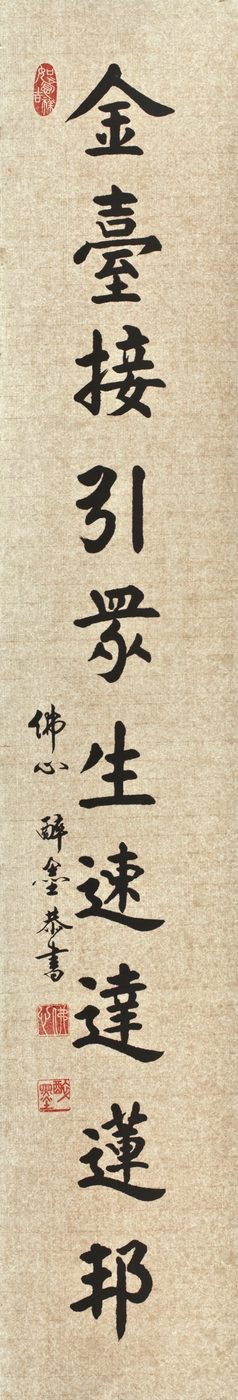 金臺接引眾生速達蓮邦
佛心 醉墨恭書